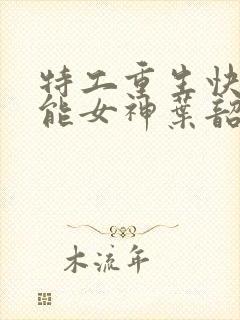 特工重生快
能女神葉韶
木流年